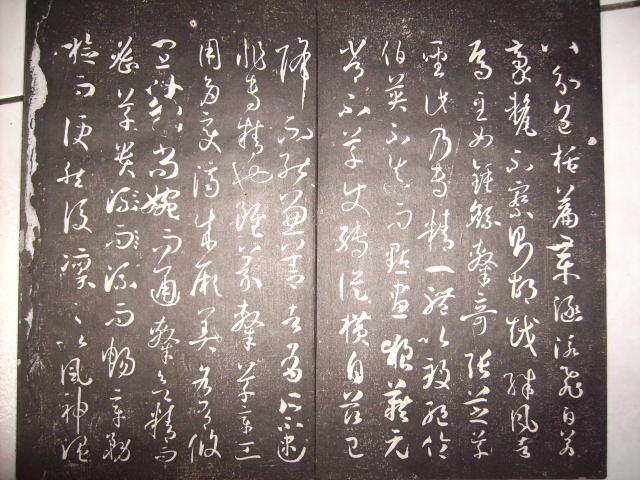 八分包括篇章涵泳飛白若
毫釐不察則胡越殊風者
焉至如鍾繇隸奇張芝草
聖此乃專精一體以致絕倫
伯英不真而點畫狼藉元
常不草使轉縱橫自茲已
降不能兼善者有所不逮
非專精也雖篆隸草章工
用多變濟成厥美各有攸
宜篆尚婉而通隸欲精而
密草貴流而暢章務
檢而便然後凜之以風神溫